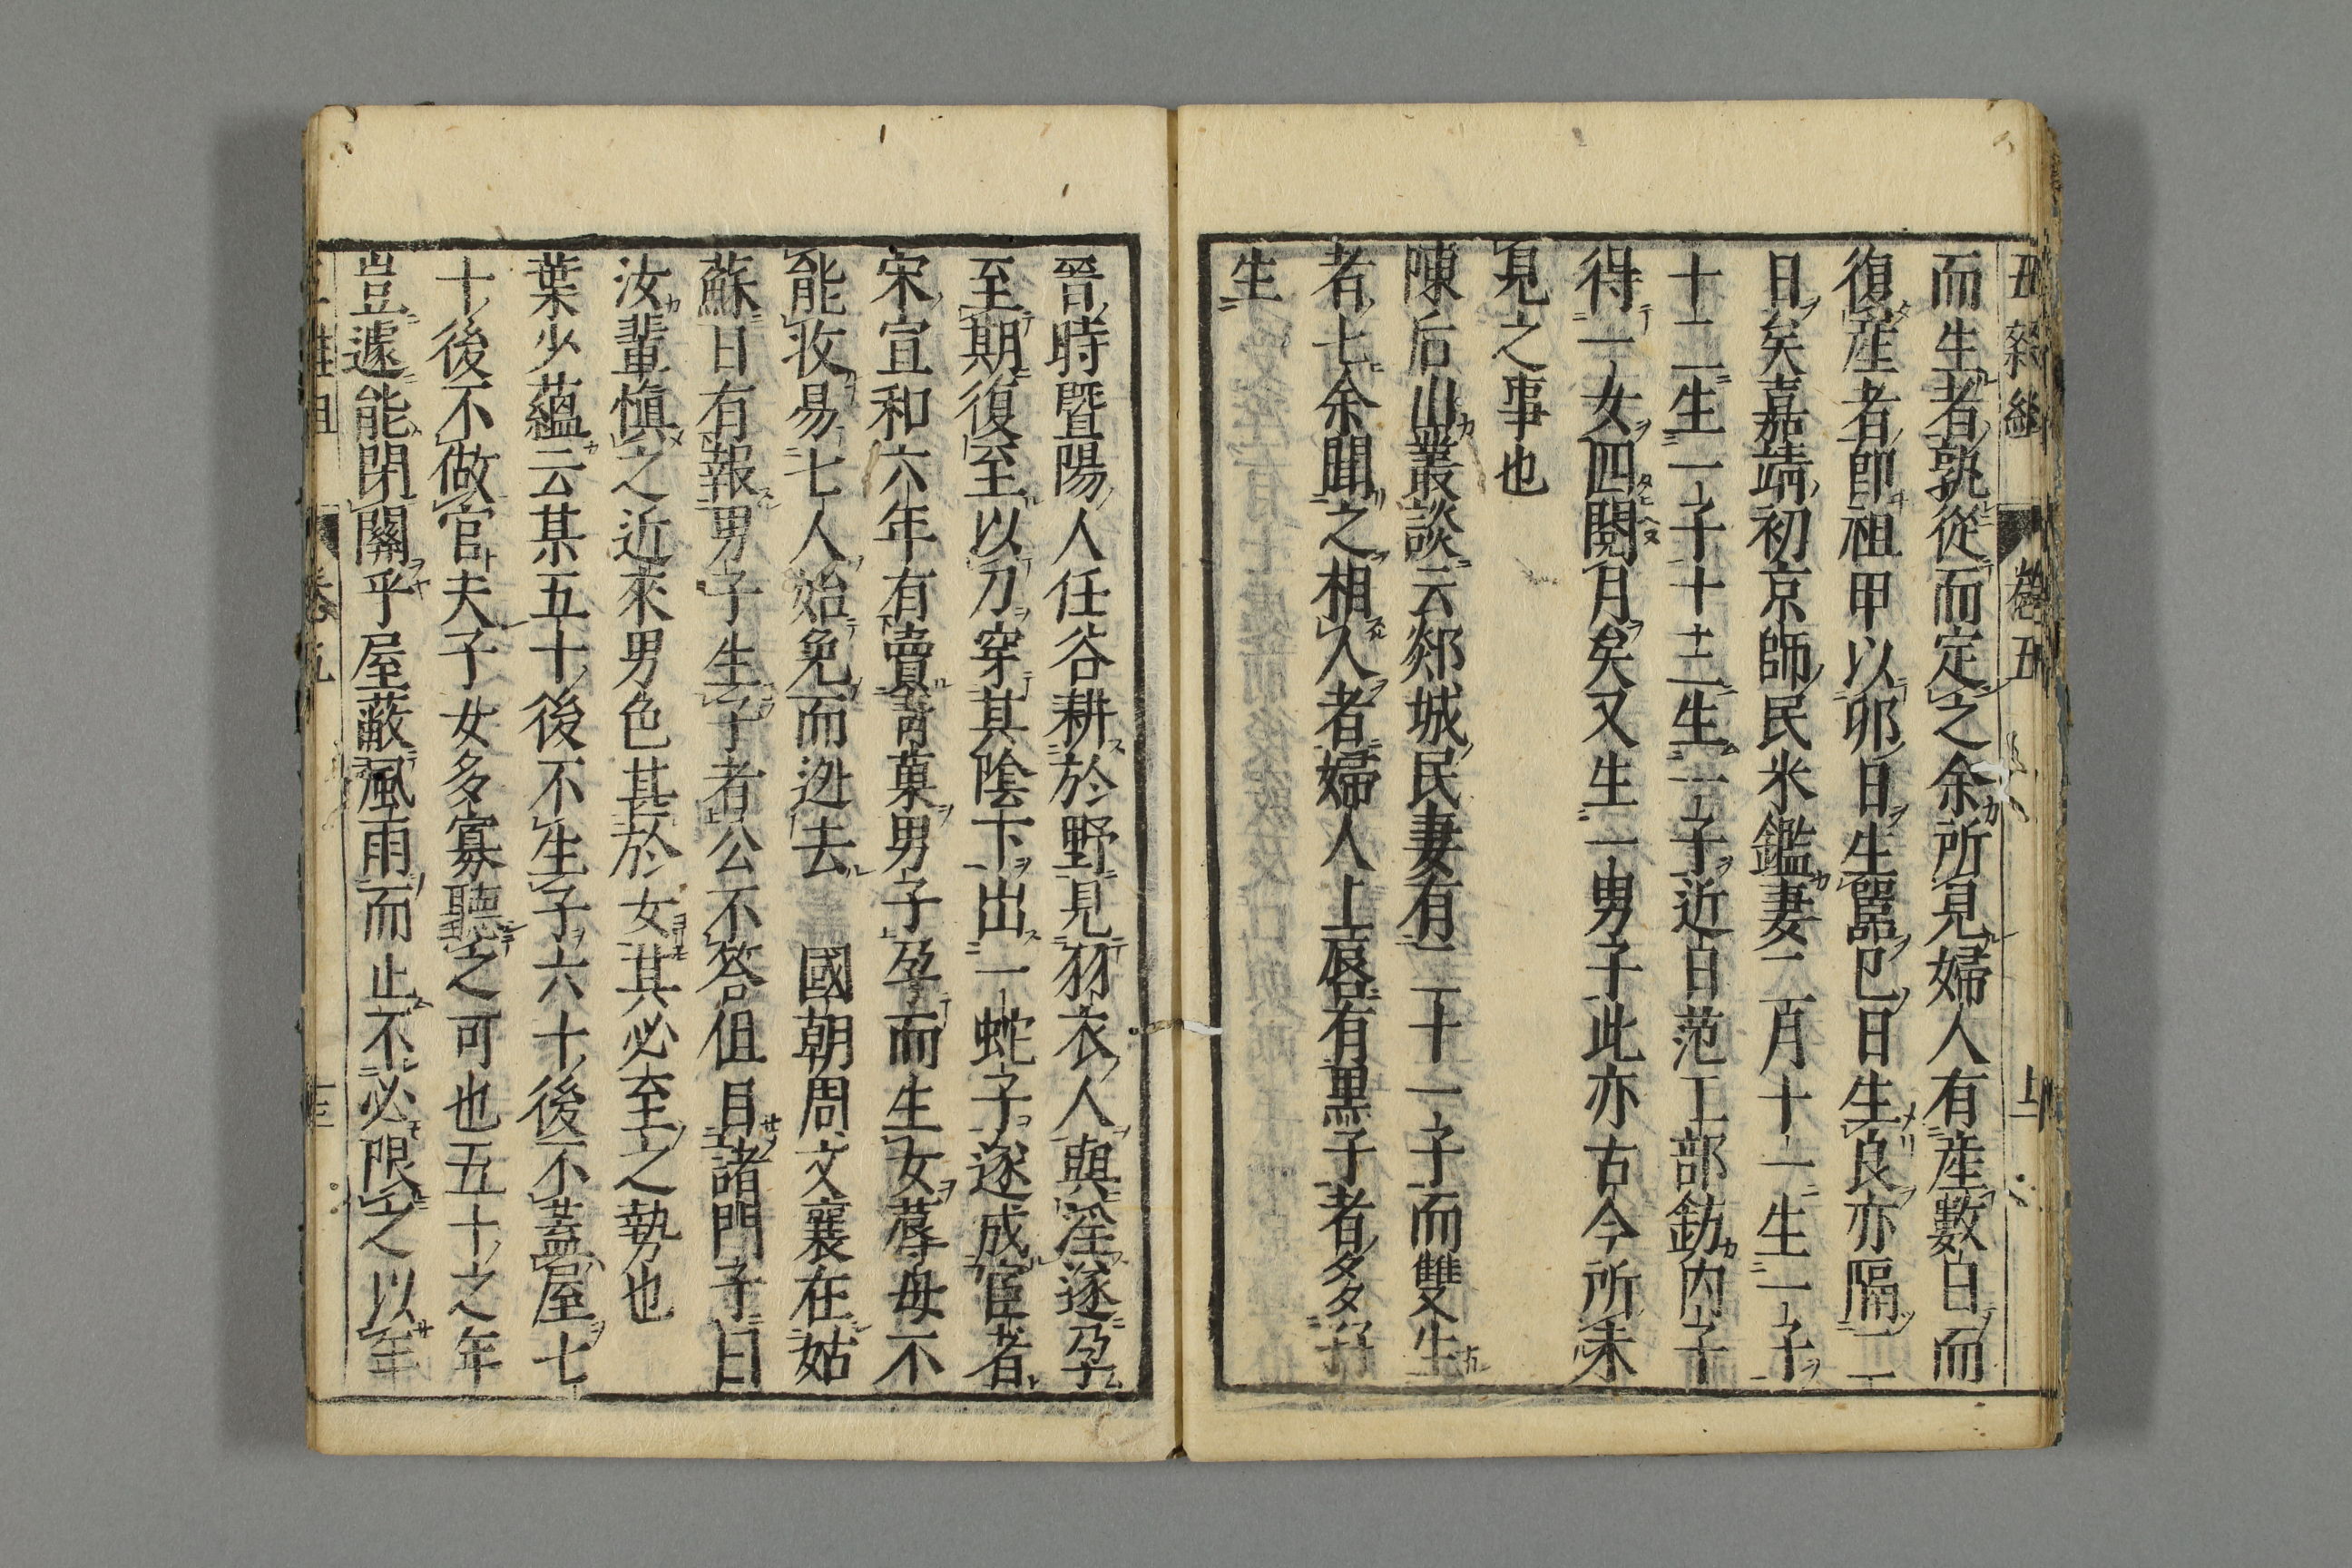 而生者孰從而定之余所見婦人有產數日而
復產者卽祖甲以卯日生嚚巳日生良亦隔二
日矣嘉靖初京師民米鑑妻二月十一生一子
十二生一子十三生一子近日范工部鈁內子
得一女四閱月矣又生一男子此亦古今所未
見之事也
陳后山叢談云郯城民妻有二十一子而雙生
者七余聞之相人者婦人上唇有黑子者多孖
生
晉時暨陽人任谷耕於野見羽衣人與淫遂孕
至期復至以刀穿其陰下出一蛇子遂成宦者
宋宣和六年有賣青菓男子孕而生女蓐母不
能收易七人始免而逃去　國朝周文襄在姑
蘇日有報男子生子者公不答但目諸門子曰
汝輩慎之近來男色甚於女其必至之勢也
葉少蘊云某五十後不生子六十後不蓋屋七
十後不做官夫子女多寡聽之可也五十之年
豈遽能閉關乎屋蔽風雨而止不必限之以年
卷五